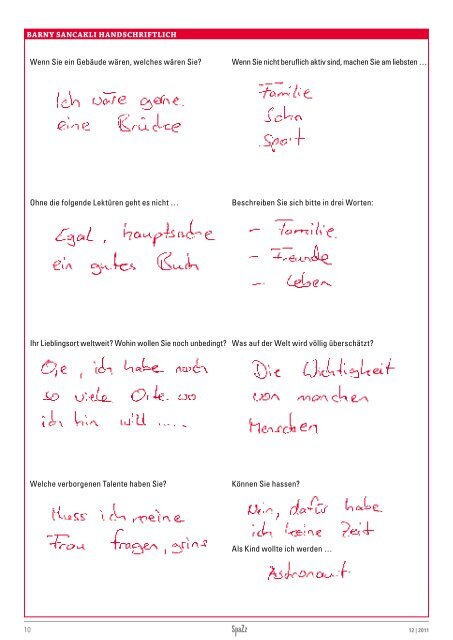 BARNY SANCAKLI HANDSCHRIFTLICH
Wenn Sie ein Gebäude wären, welches wären Sie?
Ich wäre gerne
eine Brücke
Wenn Sie nicht beruflich aktiv sind, machen Sie am liebsten …
Familie
Sohn
Sport
Ohne die folgende Lektüren geht es nicht …
Egal, hauptsache
ein gutes Buch
Beschreiben Sie sich bitte in drei Worten:
– Familie
– Freunde
– Leben
Ihr Lieblingsort weltweit? Wohin wollen Sie noch unbedingt?
Oje, ich habe noch
so viele Orte wo
ich hin will .....
Was auf der Welt wird völlig überschätzt?
Die Wichtigkeit
von manchen
Menschen
Welche verborgenen Talente haben Sie?
Muss ich meine
Frau fragen, grins
Können Sie hassen?
Nein, dafür habe
ich keine Zeit
Als Kind wollte ich werden …
Astronaut
10
SpaZz
12 | 2011